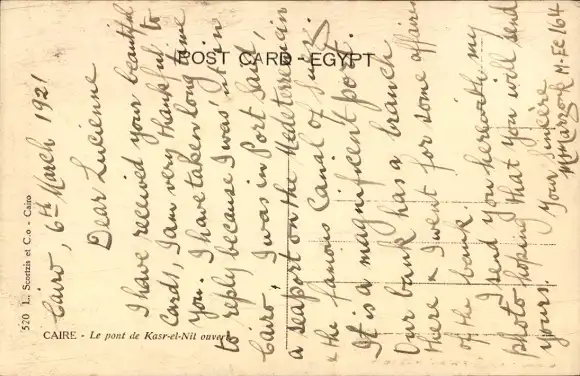 POST CARD - EGYPT
520 L. Scortzis et C.o - Cairo
CAIRE - Le pont de Kasr-el-Nil ouvert
Cairo, 6th March 1921
Dear Lucienne
I have received your beautiful
cards, I am very thankful to
you. I have taken long time
to reply because I was not in
Cairo, I was in Port Said,
a seaport on the Mediterranean
& the famous Canal of Suez.
It is a magnificent port.
Our bank has a branch
there & I went for some affairs
of the bank.
I send you herewith my
photo hoping that you will send
yours.
Your sincère
M. Marzouk M.EC 164